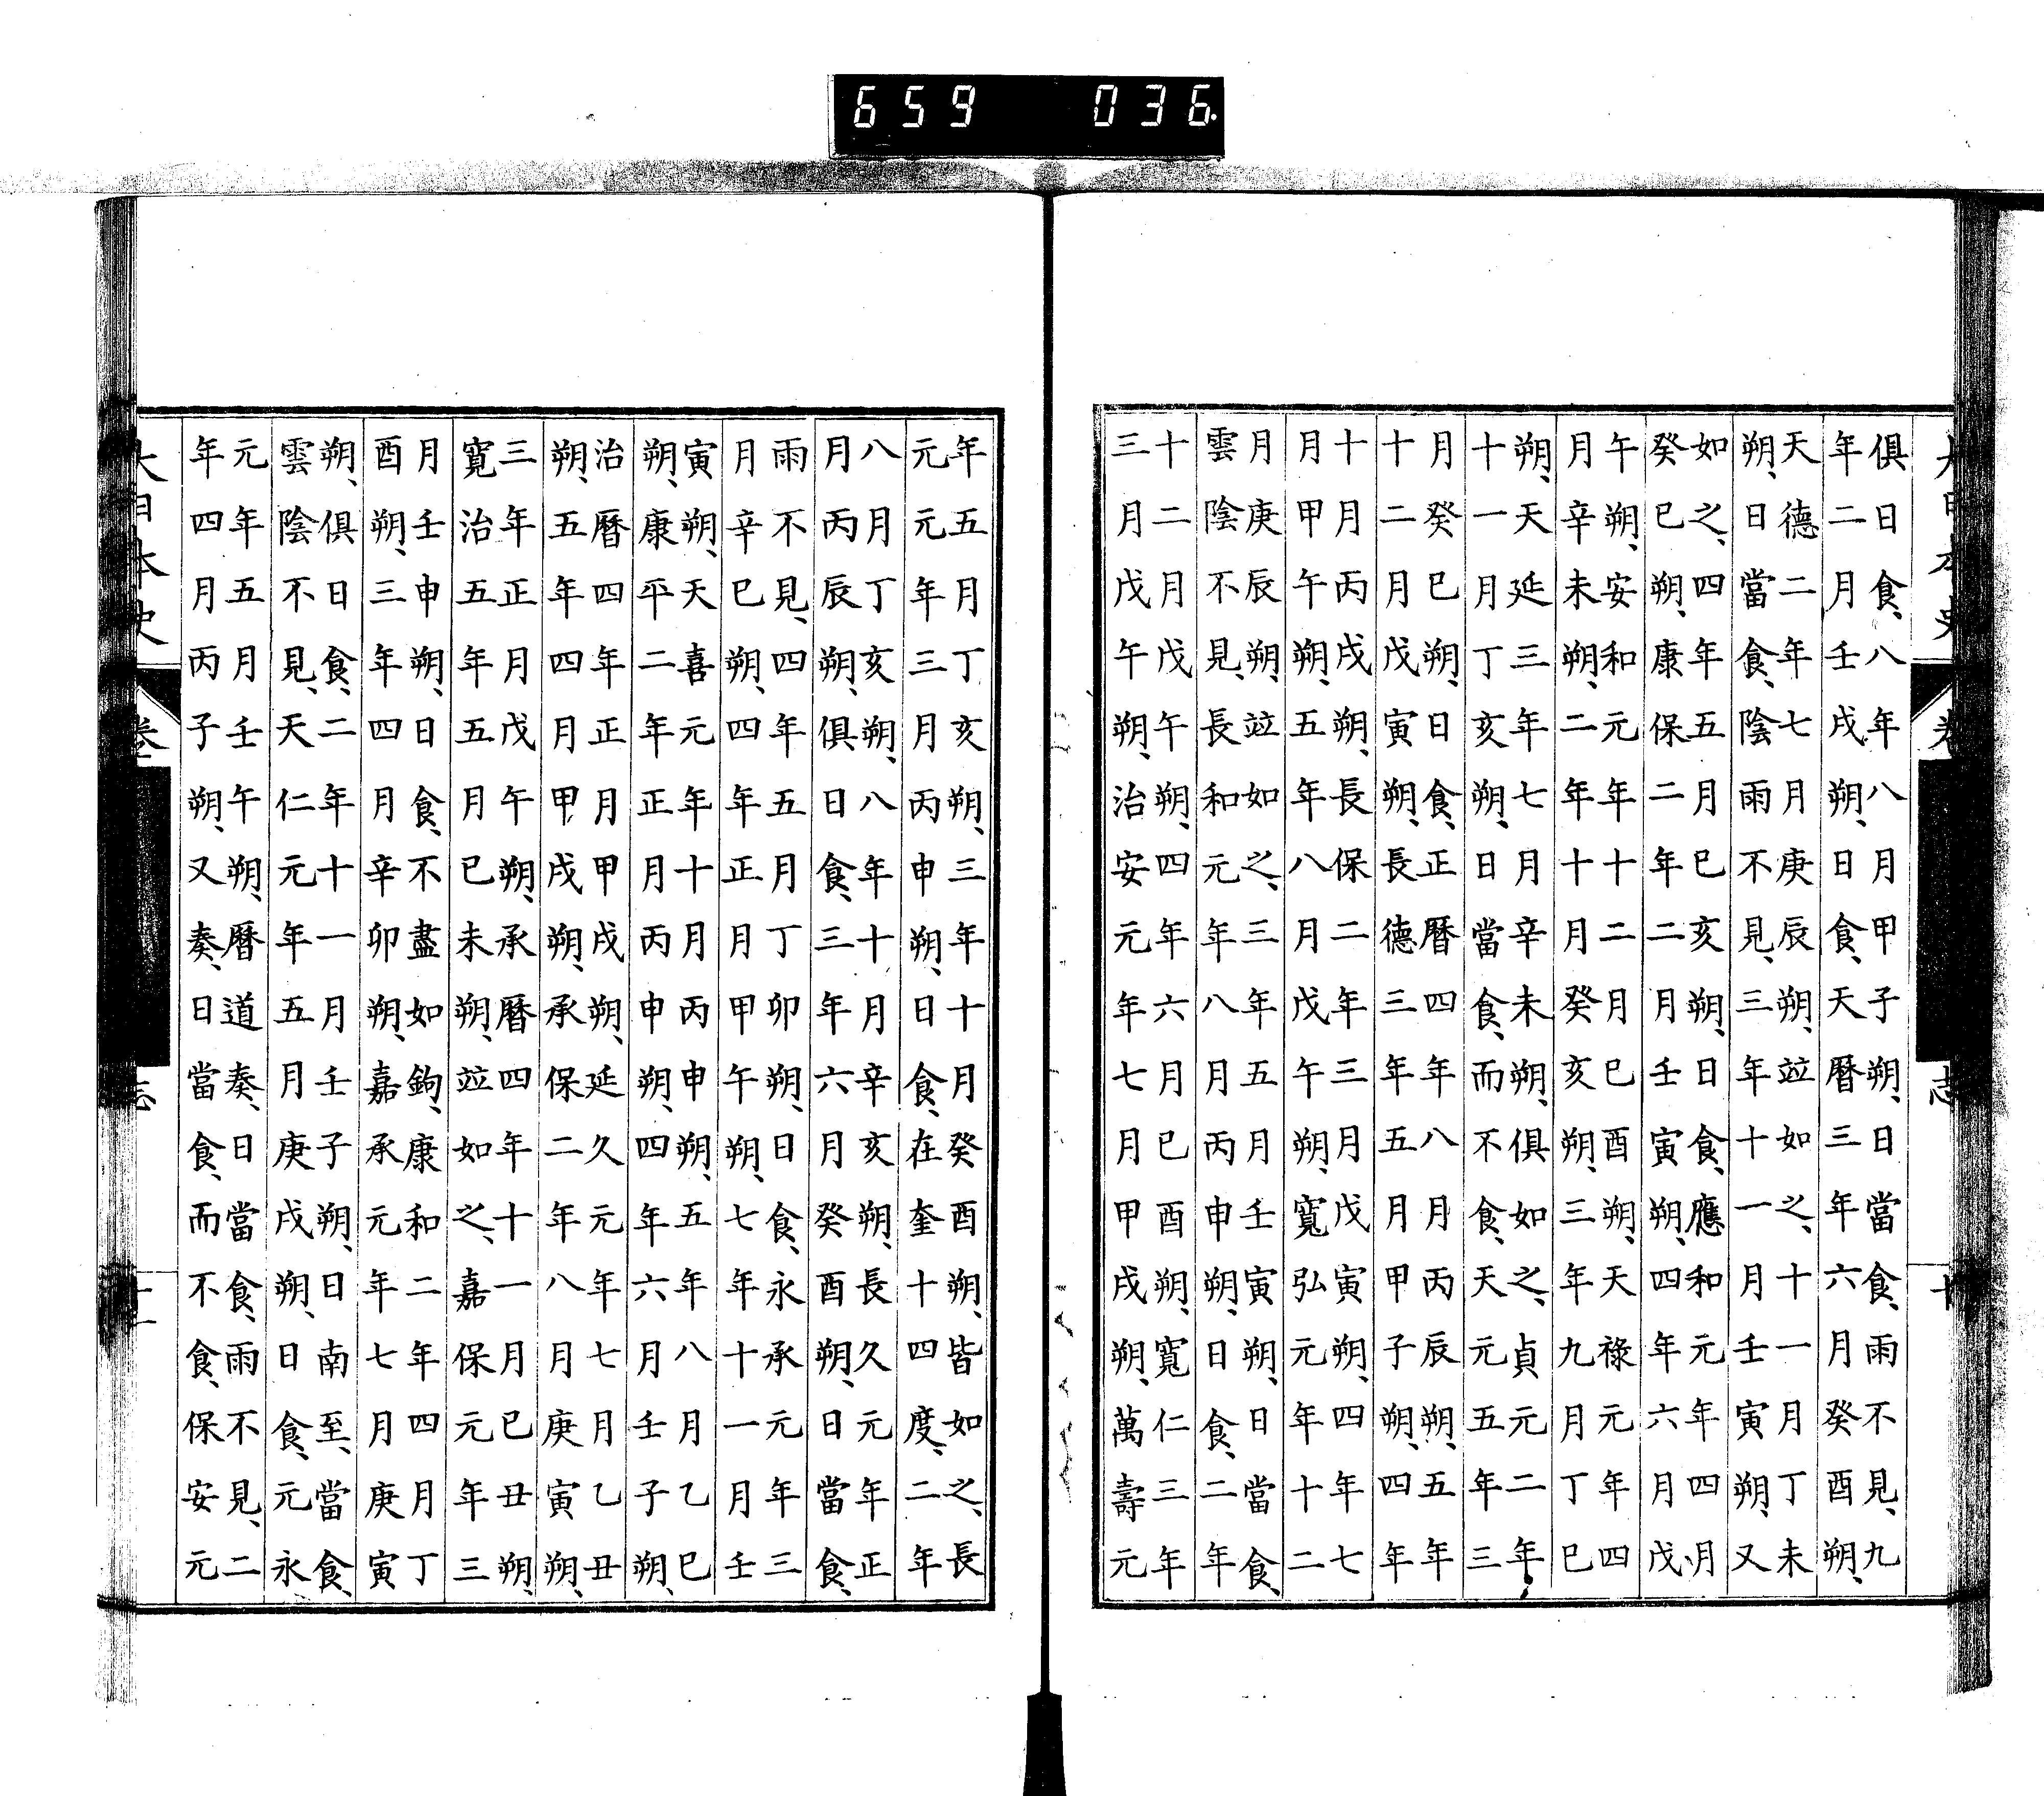 659 036
俱日食、八年八月甲子朔、日當食、雨不見、九
年二月壬戌朔、日食、天曆三年六月癸酉朔、
天德二年七月庚辰朔、竝如之、十一月丁未
朔、日當食、陰雨不見、三年十一月壬寅朔、又
如之、四年五月巳亥朔、日食、應和元年四月
癸巳朔、康保二年二月壬寅朔、四年六月戊
午朔、安和元年十二月巳酉朔、天祿元年四
月辛未朔、二年十月癸亥朔、三年九月丁巳
朔、天延三年七月辛未朔、俱如之、貞元二年、
十一月丁亥朔、日當食、而不食、天元五年三
月癸巳朔、日食、正曆四年八月丙辰朔、五年
十二月戊寅朔、長德三年五月甲子朔、四年
十月丙戌朔、長保二年三月戊寅朔、四年七
月甲午朔、五年八月戊午朔、寬弘元年十二
月庚辰朔、竝如之、三年五月壬寅朔、日當食、
雲陰不見、長和元年八月丙申朔、日食、二年
十二月戊午朔、四年六月巳酉朔、寬仁三年
三月戊午朔、治安元年七月甲戌朔、萬壽元
年五月丁亥朔、三年十月癸酉朔、皆如之、長
元元年三月丙申朔、日食、在奎十四度、二年
八月丁亥朔、八年十月辛亥朔、長久元年正
月丙辰朔、俱日食、三年六月癸酉朔、日當食、
雨不見、四年五月丁卯朔、日食、永承元年三
月辛巳朔、四年正月甲午朔、七年十一月壬
寅朔、天喜元年十月丙申朔、五年八月乙巳
朔、康平二年正月丙申朔、四年六月壬子朔、
治曆四年正月甲戌朔、延久元年七月乙丑
朔、五年四月甲戌朔、承保二年八月庚寅朔、
三年正月戊午朔、承曆四年十一月巳丑朔、
寬治五年五月巳未朔、竝如之、嘉保元年三
月壬申朔、日食、不盡如鉤、康和二年四月丁
酉朔、三年四月辛卯朔、嘉承元年七月庚寅
朔、俱日食、二年十一月壬子朔、日南至、當食、
雲陰不見、天仁元年五月庚戌朔、日食、元永
元年五月壬午朔、曆道奏、日當食、雨不見、二
年四月丙子朔、又奏、日當食、而不食、保安元
大日本史 卷 志